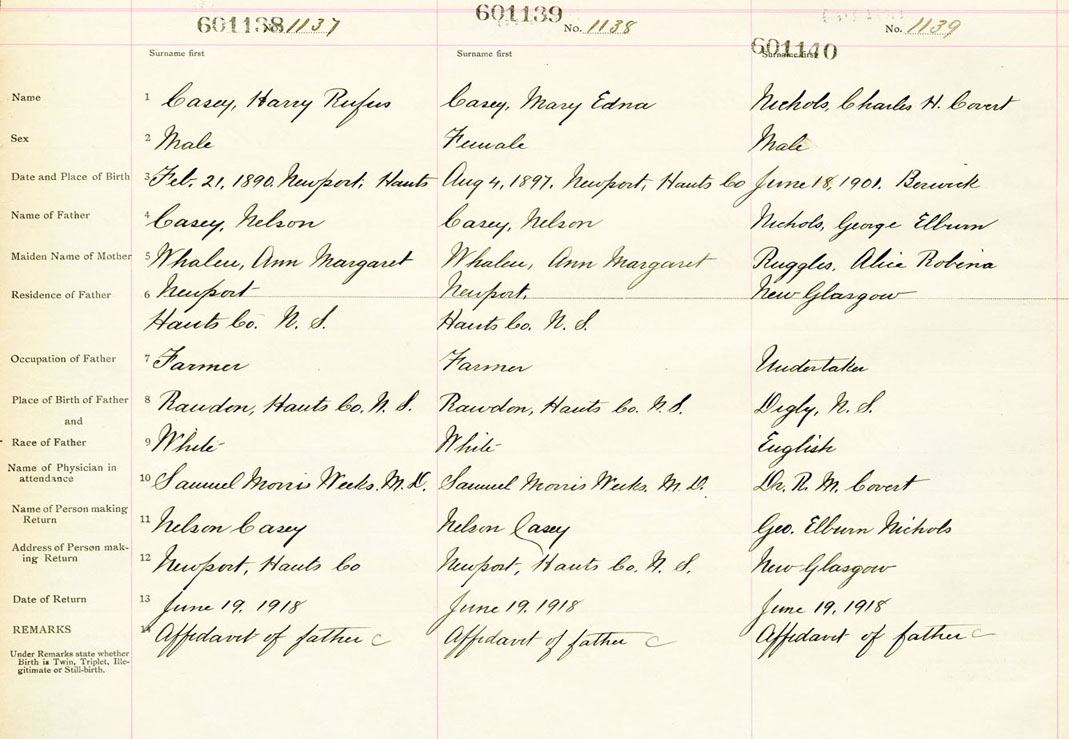 601138 No. 1137 601139 No. 1138 601140 No. 1139
Surname first Surname first Surname first
Name 1 Casey, Harry Rufus Casey, Mary Edna Nichols, Charles H. Covert
Sex 2 Male Female Male
Date and Place of Birth 3 Feb. 21, 1890. Newport, Hants Aug 4, 1897. Newport, Hants Co June 18, 1901. Berwick
Name of Father 4 Casey, Nelson Casey, Nelson Nichols, George Elburn
Maiden Name of Mother 5 Whalen, Ann Margaret Whalen, Ann Margaret Ruggles, Alice Robina
Residence of Father 6 Newport Newport, New Glasgow
Hants Co. N. S. Hants Co. N. S.
Occupation of Father 7 Farmer Farmer Undertaker
Place of Birth of Father 8 Rawdon, Hants Co. N. S. Rawdon, Hants Co. N. S. Digby, N. S.
and
Race of Father 9 White White English
Name of Physician in
attendance 10 Samuel Morris Weeks. M. D. Samuel Morris Weeks. M. D. Dr. R. M. Covert
Name of Person making
Return 11 Nelson Casey Nelson Casey Geo. Elburn Nichols
Address of Person mak-
ing Return 12 Newport, Hants Co Newport, Hants Co. N. S. New Glasgow
Date of Return 13 June 19. 1918 June 19. 1918 June 19, 1918
REMARKS 14 Affidavit of father C Affidavit of father C Affidavit of father C
Under Remarks state whether
Birth is Twin, Triplet, Ille-
gitimate or Still-birth.